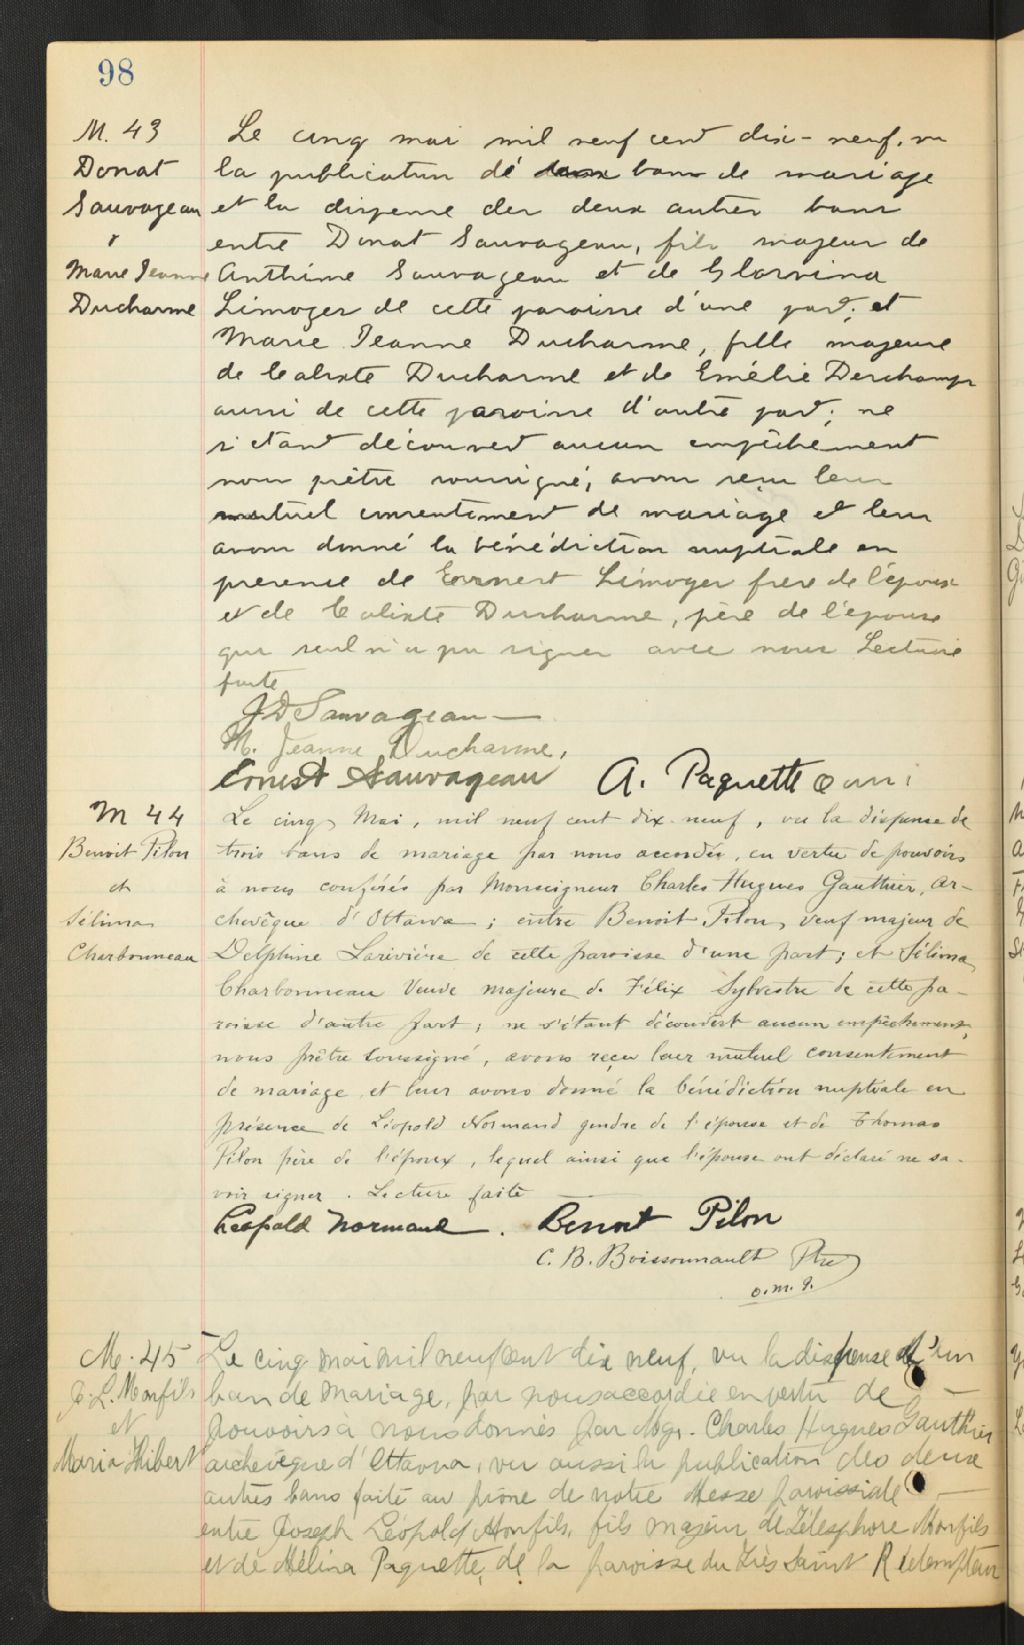 98
M. 43
Donat
Sauvageau
&
Marie Jeanne
Ducharme
Le cinq mai mil neuf cent dix-neuf, vu
la publication de bans de mariage
et la dispense des deux autres bans
entre Donat Sauvageau, fils majeur de
Anthime Sauvageau et de Glorvina
Limoges de cette paroisse d'une part; et
Marie Jeanne Ducharme, fille majeure
de Calixte Ducharme et de Emélie Deschamps
aussi de cette paroisse d'autre part; ne
s'étant découvert aucun empêchement
nous prêtre soussigné, avons reçu leur
mutuel consentement de mariage et leur
avons donné la bénédiction nuptiale en
presence de Ernest Limoges frère de l'époux
et de Calixte Ducharme, père de l'épouse
qui seul n'a pu signer avec nous Lecture
faite
J D Sauvageau
M. Jeanne Ducharme,
Ernest Sauvageau A. Paquette omi
M 44
Benoit Pilon
et
Sélima
Charbonneau
Le cinq Mai, mil neuf cent dix-neuf, vu la dispense de
trois bans de mariage par nous accordée, en vertu de pouvoirs
à nous conférés par Monseigneur Charles Hugues Gauthier, Ar-
chevêque d'Ottawa; entre Benoit Pilon, veuf majeur de
Delphine Larivière de cette paroisse d'une part; et Sélima
Charbonneau Veuve majeure de Félix Sylvestre de cette pa-
roisse d'autre part; ne s'étant découvert aucun empêchement,
nous prêtre soussigné, avons reçu leur mutuel consentement
de mariage et leur avons donné la bénédiction nuptiale en
présence de Léopold Normand gendre de l'épouse et de Thomas
Pilon père de l'époux, lequel ainsi que l'épouse ont déclaré ne sa-
voir signer. Lecture faite
Léopold Normand. Benoit Pilon
C. B. Boissonnault Ptre
o.m.i.
M. 45
J. L. Monfils
et
Maria Thibert
Le cinq mai mil neuf cent dix neuf, vu la dispense d'un
ban de mariage, par nous accordée en vertu de
pouvoirs à nous donnés par Mgr. Charles Hugues Gauthier
archevêque d'Ottawa, vu aussi la publication des deux
autres bans faite au prône de notre Messe paroissiale
entre Joseph Léopold Monfils, fils majeur de Télesphore Monfils
et de Mélina Paquette, de la paroisse du Très Saint Rédempteur